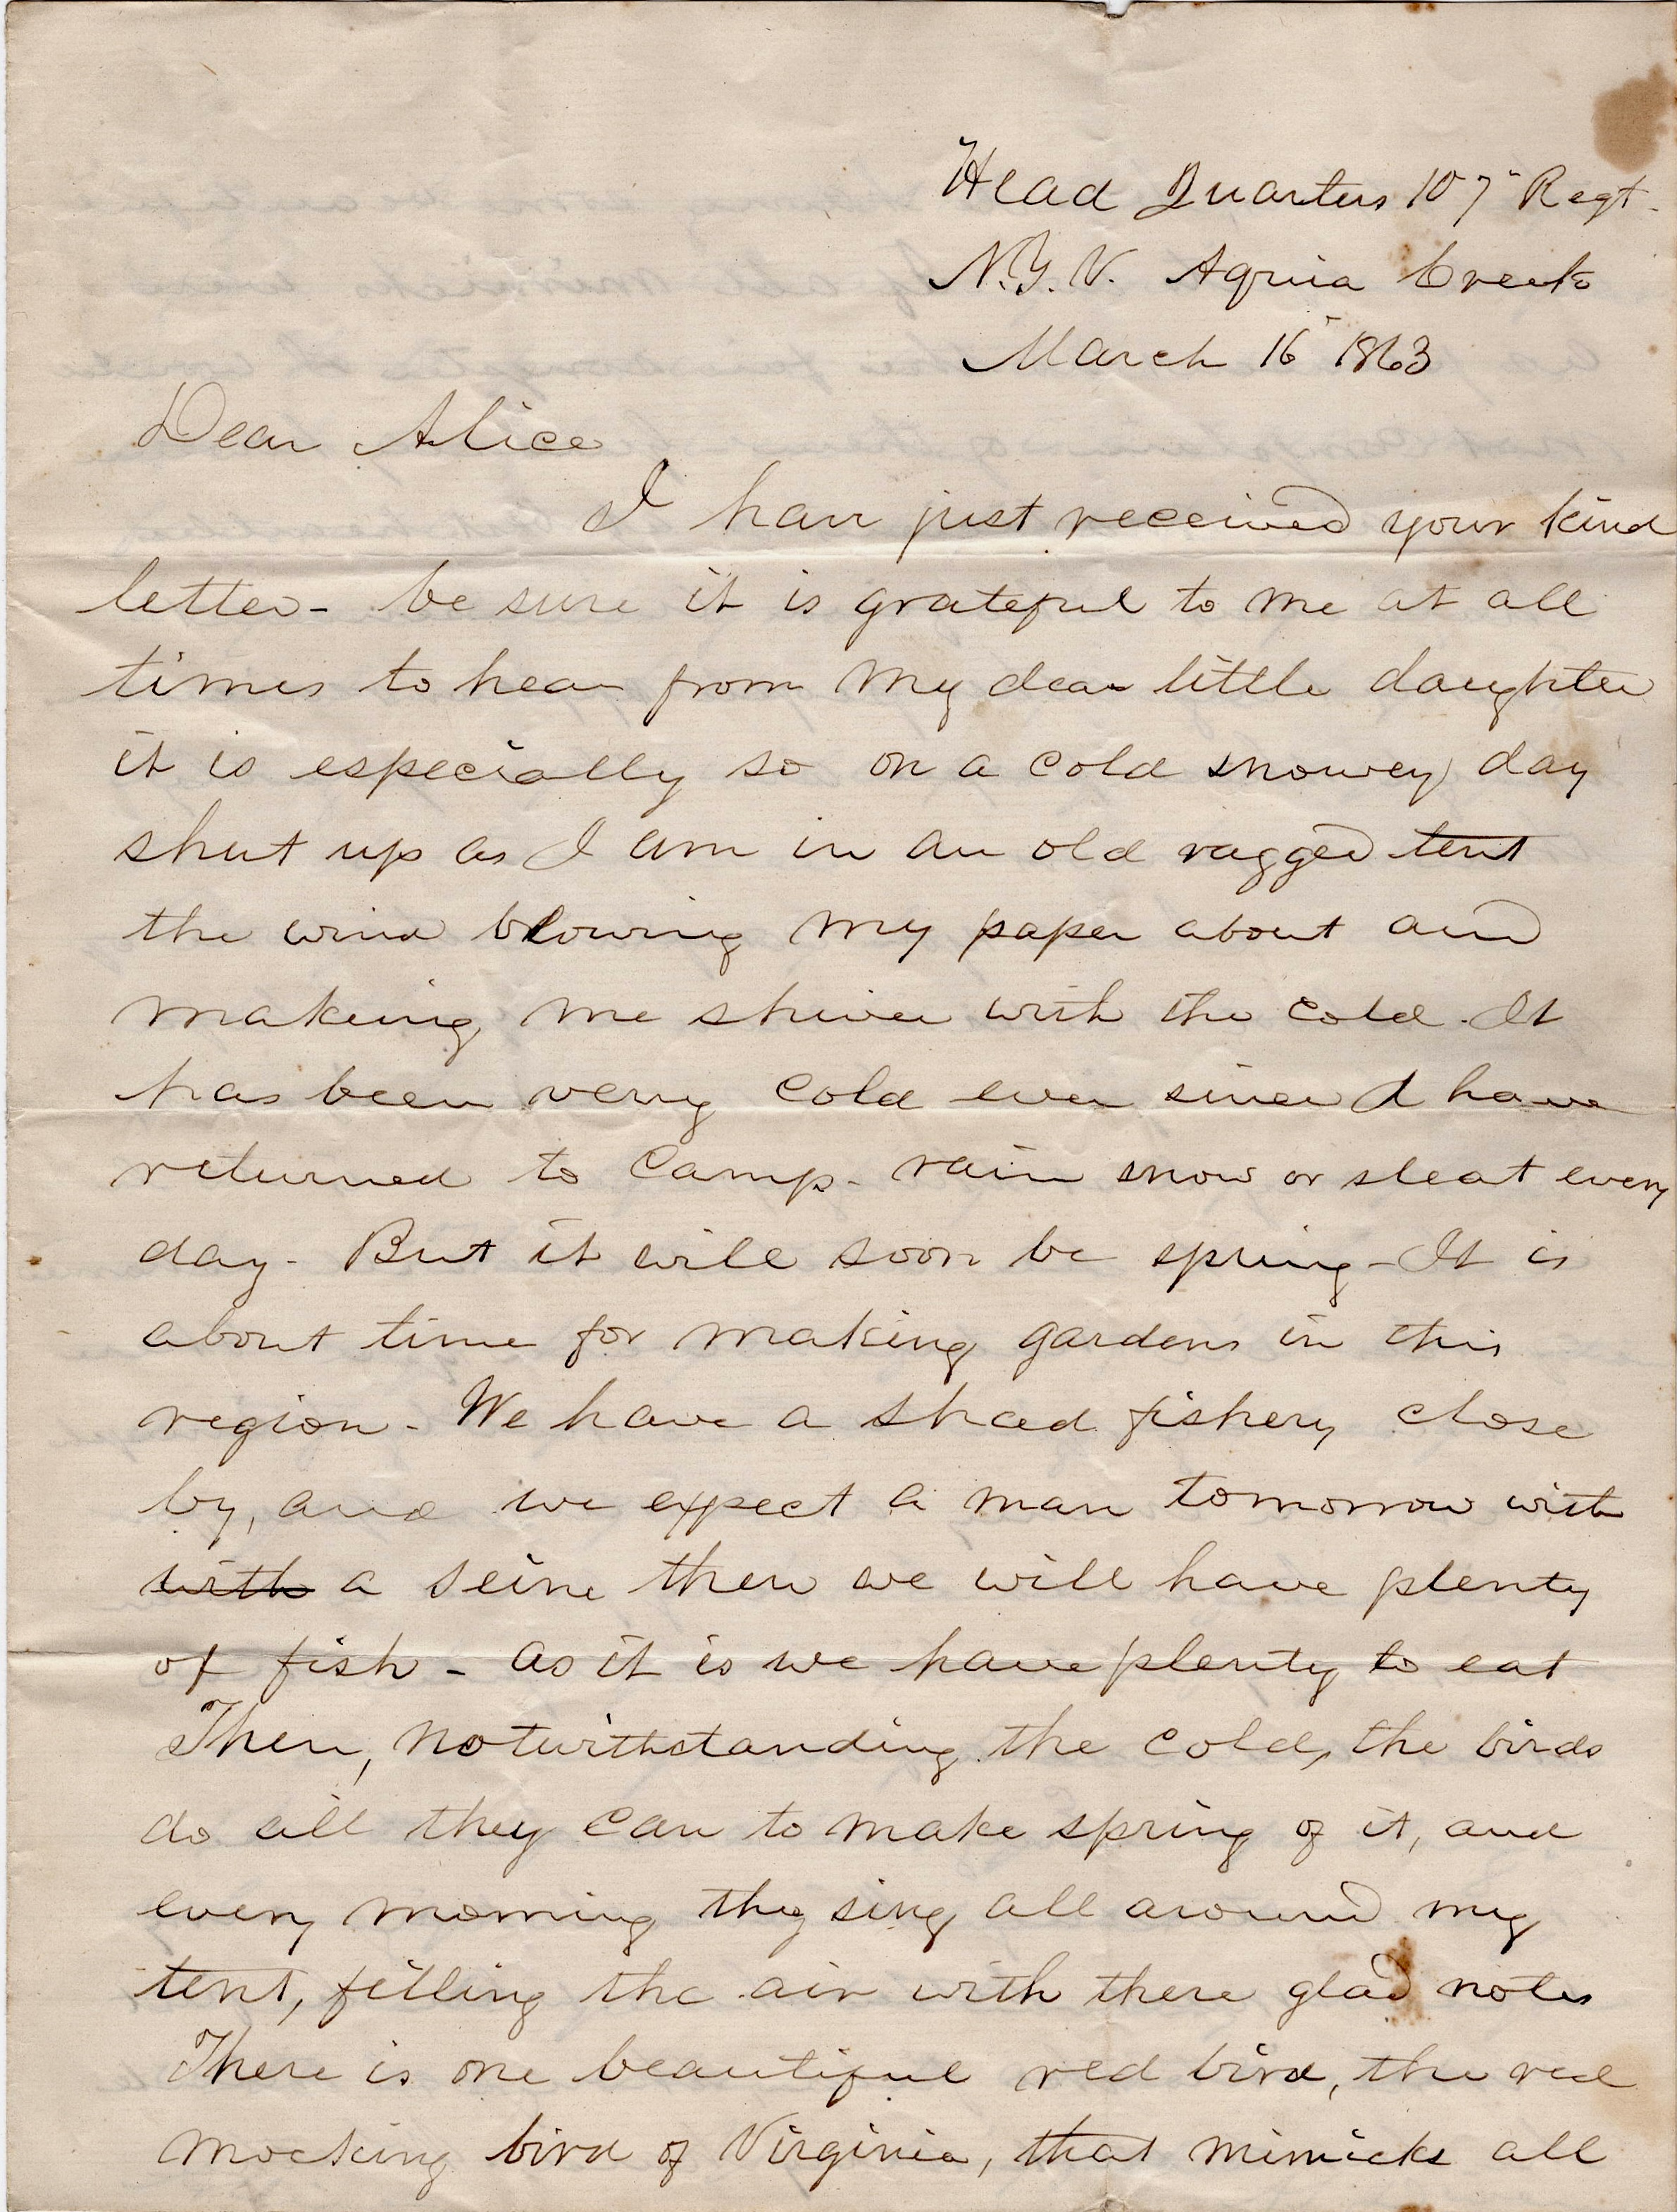 Head Quarters 107" Regt.
N.Y.V. Aquia Creek
March 16" 1863
Dear Alice
I have just received your kind
letter - be sure it is grateful to me at all
times to hear from my dear little daughter
it is especially so on a cold snowey day
shut up as I am in an old ragged tent
the wind blowing my paper about and
makeing me shiver with the cold. It
has been very cold ever since I have
returned to Camp - rain snow or sleat every
day - But it will soon be spring - It is
about time for making gardens in this
region - We have a shad fishery close
by, and we expect a man tomorrow with
with a seine then we will have plenty
of fish - as it is we have plenty to eat
Then, notwithstanding the cold, the birds
do all they can to make spring of it, and
every morning they sing all around my
tent, filling the air with there glad notes
There is one beautiful red bird, the red
mocking bird of Virginia, that mimicks all